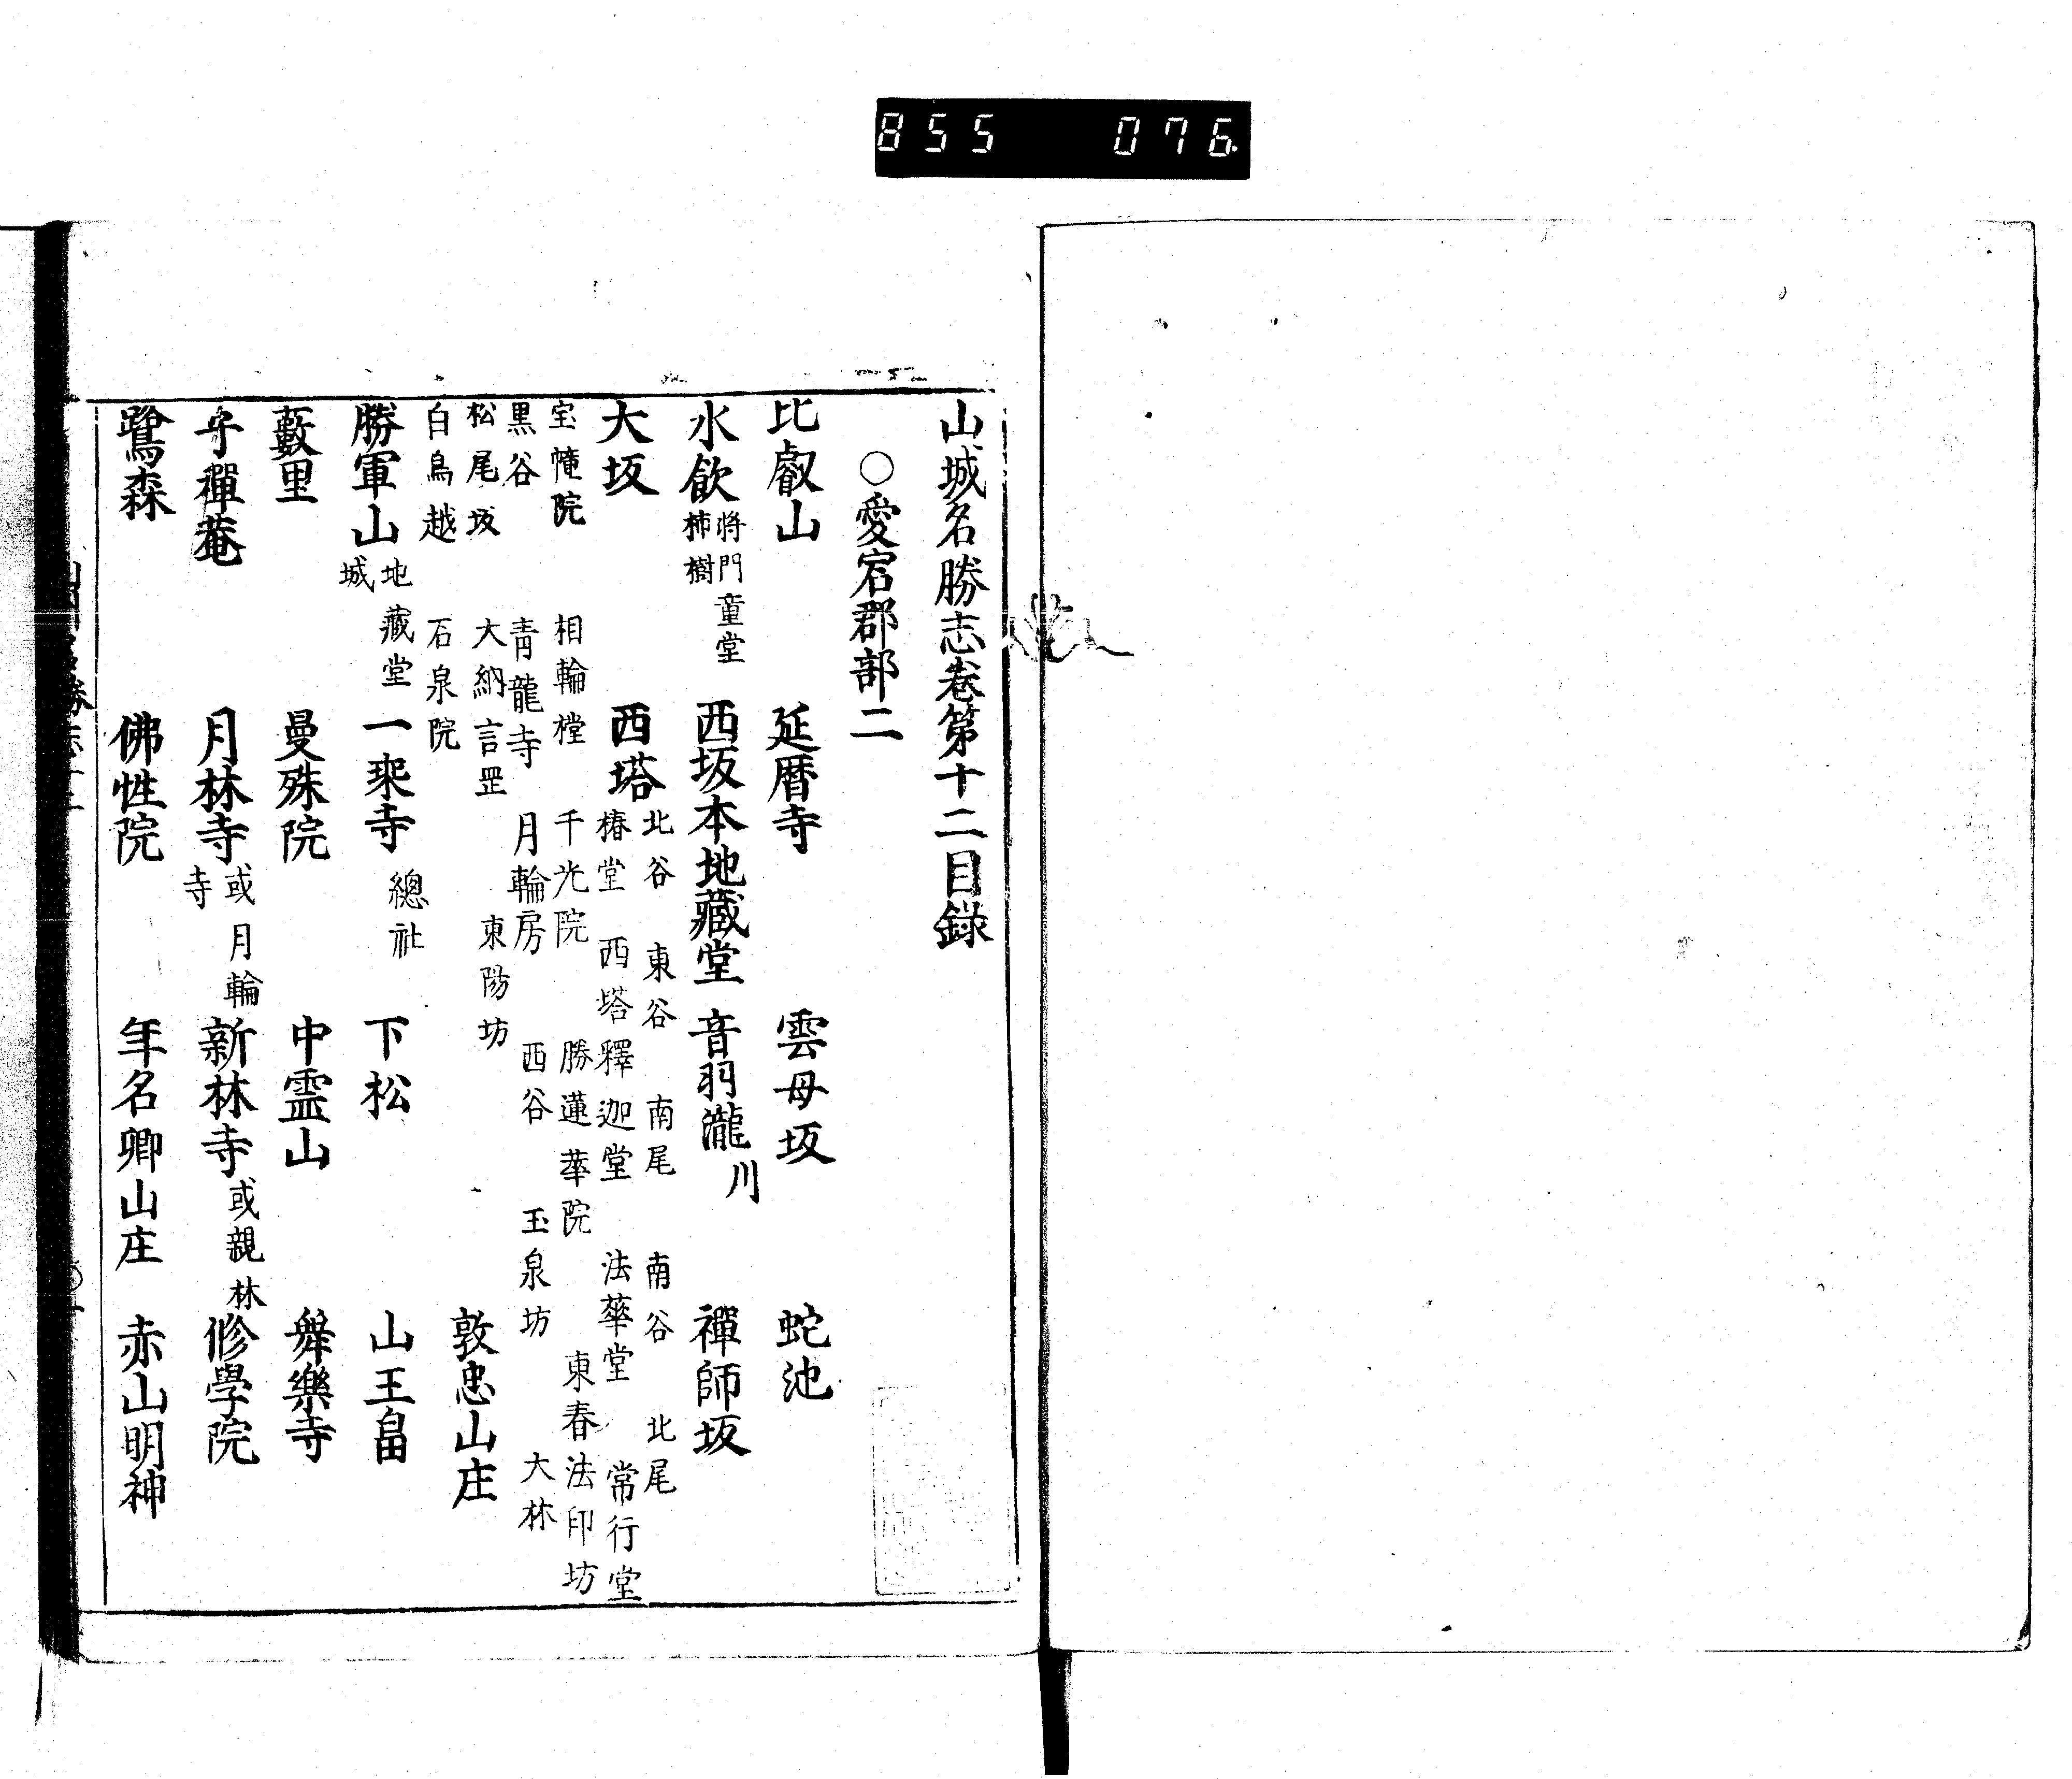 855 076
山城名勝志巻第十二目録
○愛宕郡部二
比叡山 延暦寺 雲母坂 蛇池
水飲 將門童堂 柿樹 西坂本地藏堂 音羽瀧 川 禪師坂
大坂 西塔 北谷 東谷 南尾 南谷 北尾
椿堂 西塔釋迦堂 法華堂 常行堂
宝幢院 相輪樘 千光院 勝蓮華院 東春法印坊
黒谷 青龍寺 月輪房 西谷 玉泉坊 大林
松尾坂 大納言罡 東陽坊 敦忠山庄
白鳥越 石泉院
勝軍山 地藏堂 城 一乘寺 總社 下松 山王畠
藪里 曼殊院 中霊山 舞樂寺
守禪菴 月林寺 或月輪寺 新林寺 或親林 修學院
鷺森 佛性院 年名卿山庄 赤山明神